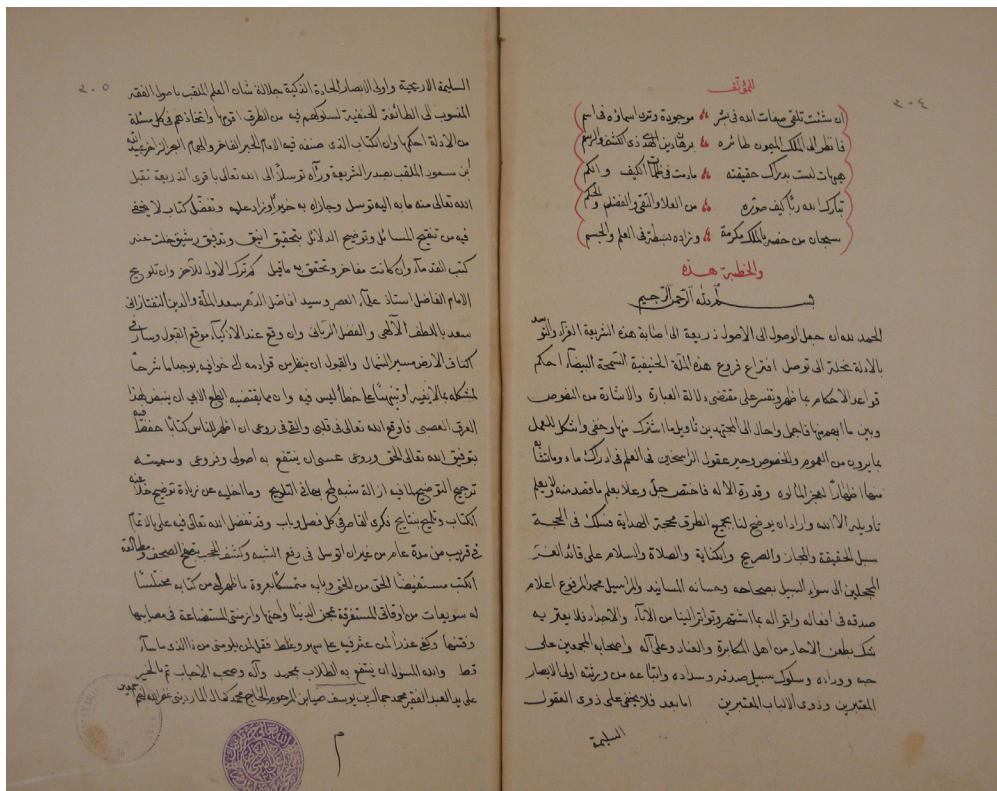 ٣٠٤
للمؤلف
ان شئت تلقى صفات الله في بشر موجودة وترى اسماؤه في اسم
فانظر الى الملك الميمون طائره برهان دين الهدى ذي الكشف والرسم
هيهات لست بدرك حقيقته ما دمت في ظلمات الكيف والكم
تبارك الله ربا كيف صوره من العلا والتقى والفضل والحكم
سبحان من خصه بالملك مكرمة وزاده بسطة في العلم والجسم
والخطبة هذه
بسم الله الرحمن الرحيم
الحمد لله ان جعل الوصول الى الاصول ذريعة الى اصابة هذه الشريعة الغراء والتوسد
بالادلة الى توصل افتراع فروع هذه الملة الحنيفية السمحة البيضاء احكم
قواعد الاحكام بما ظهر وتفسر على مقتضى دلالة العبارة والاشارة من النصوص
وبين ما ابهم منها فاجمل واحال الى المجتهدين تأويل ما اشترك منها وخفى واشكل للعمل
بما يرون من العموم والخصوص وحير عقول الراسخين في العلم في ادراك ماء ومائشابه
منها اظهارا لعجز المألوه وقدرة الاله فاختص جل وعلا بعلم ما قصد منه لا يعلم
تاويله الا الله واراد ان يوضح لنا بجميع الطرق محجة الهداية فسلك في الحجة
سبل الحقيقة والمجاز والصريح والكناية والصلاة والسلام على قائد الغر
المحجلين الى سواء السبيل بصحاحه وحسانه المسانيد والمراسيل محمد المرفوع اعلام
صدقه في افعاله واقواله بما اشتهر وتواتر الينا من الانباء والاخبار فلا يعتريه
شك بطعن الآحاد من اهل المكابرة والعناد وعلى آله واصحابه المجمعين على
حبه ووداده وسلوك سبيل صدقه وسداده واتباعه من ورثته اولى الابصار
المعتبرين وذوى الالباب المعتبرين اما بعد فلا يخفى على ذوى العقول
السليمة
٣٠٥
السليمة الاريحية واولى الابصار الحادة الذكية جلالة شان العلم الملقب باصول الفقه
المنسوب الى الطائفة الحنفية لسلوكهم فيه من الطرق اقومها واتخاذهم في كل مسئلة
من الادلة احكمها وان الكتاب الذى صنفه فيه الامام الحبر الفاخر والهمام البحر الزاخر عبيد الله
ابن مسعود الملقب بصدر الشريعة ورآه توسلا الى الله تعالى باقوى الذريعة تقبل
الله تعالى منه ما به اليه توسل وجازاه به خيرا وزاد عليه وتفضل كتاب لا يخفى
فيه من تنقيح المسائل وتوضيح الدلائل بتحقيق انيق وتدقيق رشيق خلت عنه
كتب القدماء وان كانت مفاخر وتحقق به ما قيل كم ترك الاول للآخر وان تلويح
الامام الفاضل استاذ علماء العصر وسيد افاضل الدهر سعد الملة والدين التفتازانى
سعد باللطف الآلهى والفضل الربانى وان وقع عند الاذكياء موقع القبول وسار في
اكناف الارض مسير الشمال والقبول ان ينظر من قوادمه الى خوافيه يوجد اما شرحا
لمشكله بما لا يغنيه او تنبيها على خطأ ليس فيه وان مما يقتضيه الطبع الابى ان ينبض لهذا
العرق العصبى فاوقع الله تعالى في قلبى والقى في روعى ان اظهر للناس كتابا حققا فيه
بتوفيق الله تعالى الحق وروعى عسى ان ينتفع به اصولى وفروعى وسميته
ترجيح التوضيح لما فيه ازالة شبه لمح بها في التلويح وما اخليه عن زيادة توضيح خلا عنه
الكتاب وتلميح بنتايج فكرى القاصر في كل فصل وباب وقد تفضل الله تعالى فيه على بالاتمام
في قريب من مدة عام من غير ان اتوسل في رفع الشبه وكشف الحجب بتصفح الصحف ومطالعة
الكتب مستفيضا الحق من الحق وبابه متمسكا بعروة ما ظهر لى من كتابه مختلسا
له سويعات من اوقاتى المستغرقة بمحن الدنيا وازمنتى المستضاعة في مصايبها
وفتنها وكفى عذرا لمن عثر فيه على سهو وغلط فقل لمن يلومنى من ذا الذى ما ساء
قط والله المسئول ان ينتفع به الطلاب بمحمد وآله وصحبه الاحباب تم بالخير
على يد العبد الفقير محمد جمال الدين يوسف ضيا بن المرحوم الحاج محمد كمال الماردينى غفر الله لهم
اجمعين
م